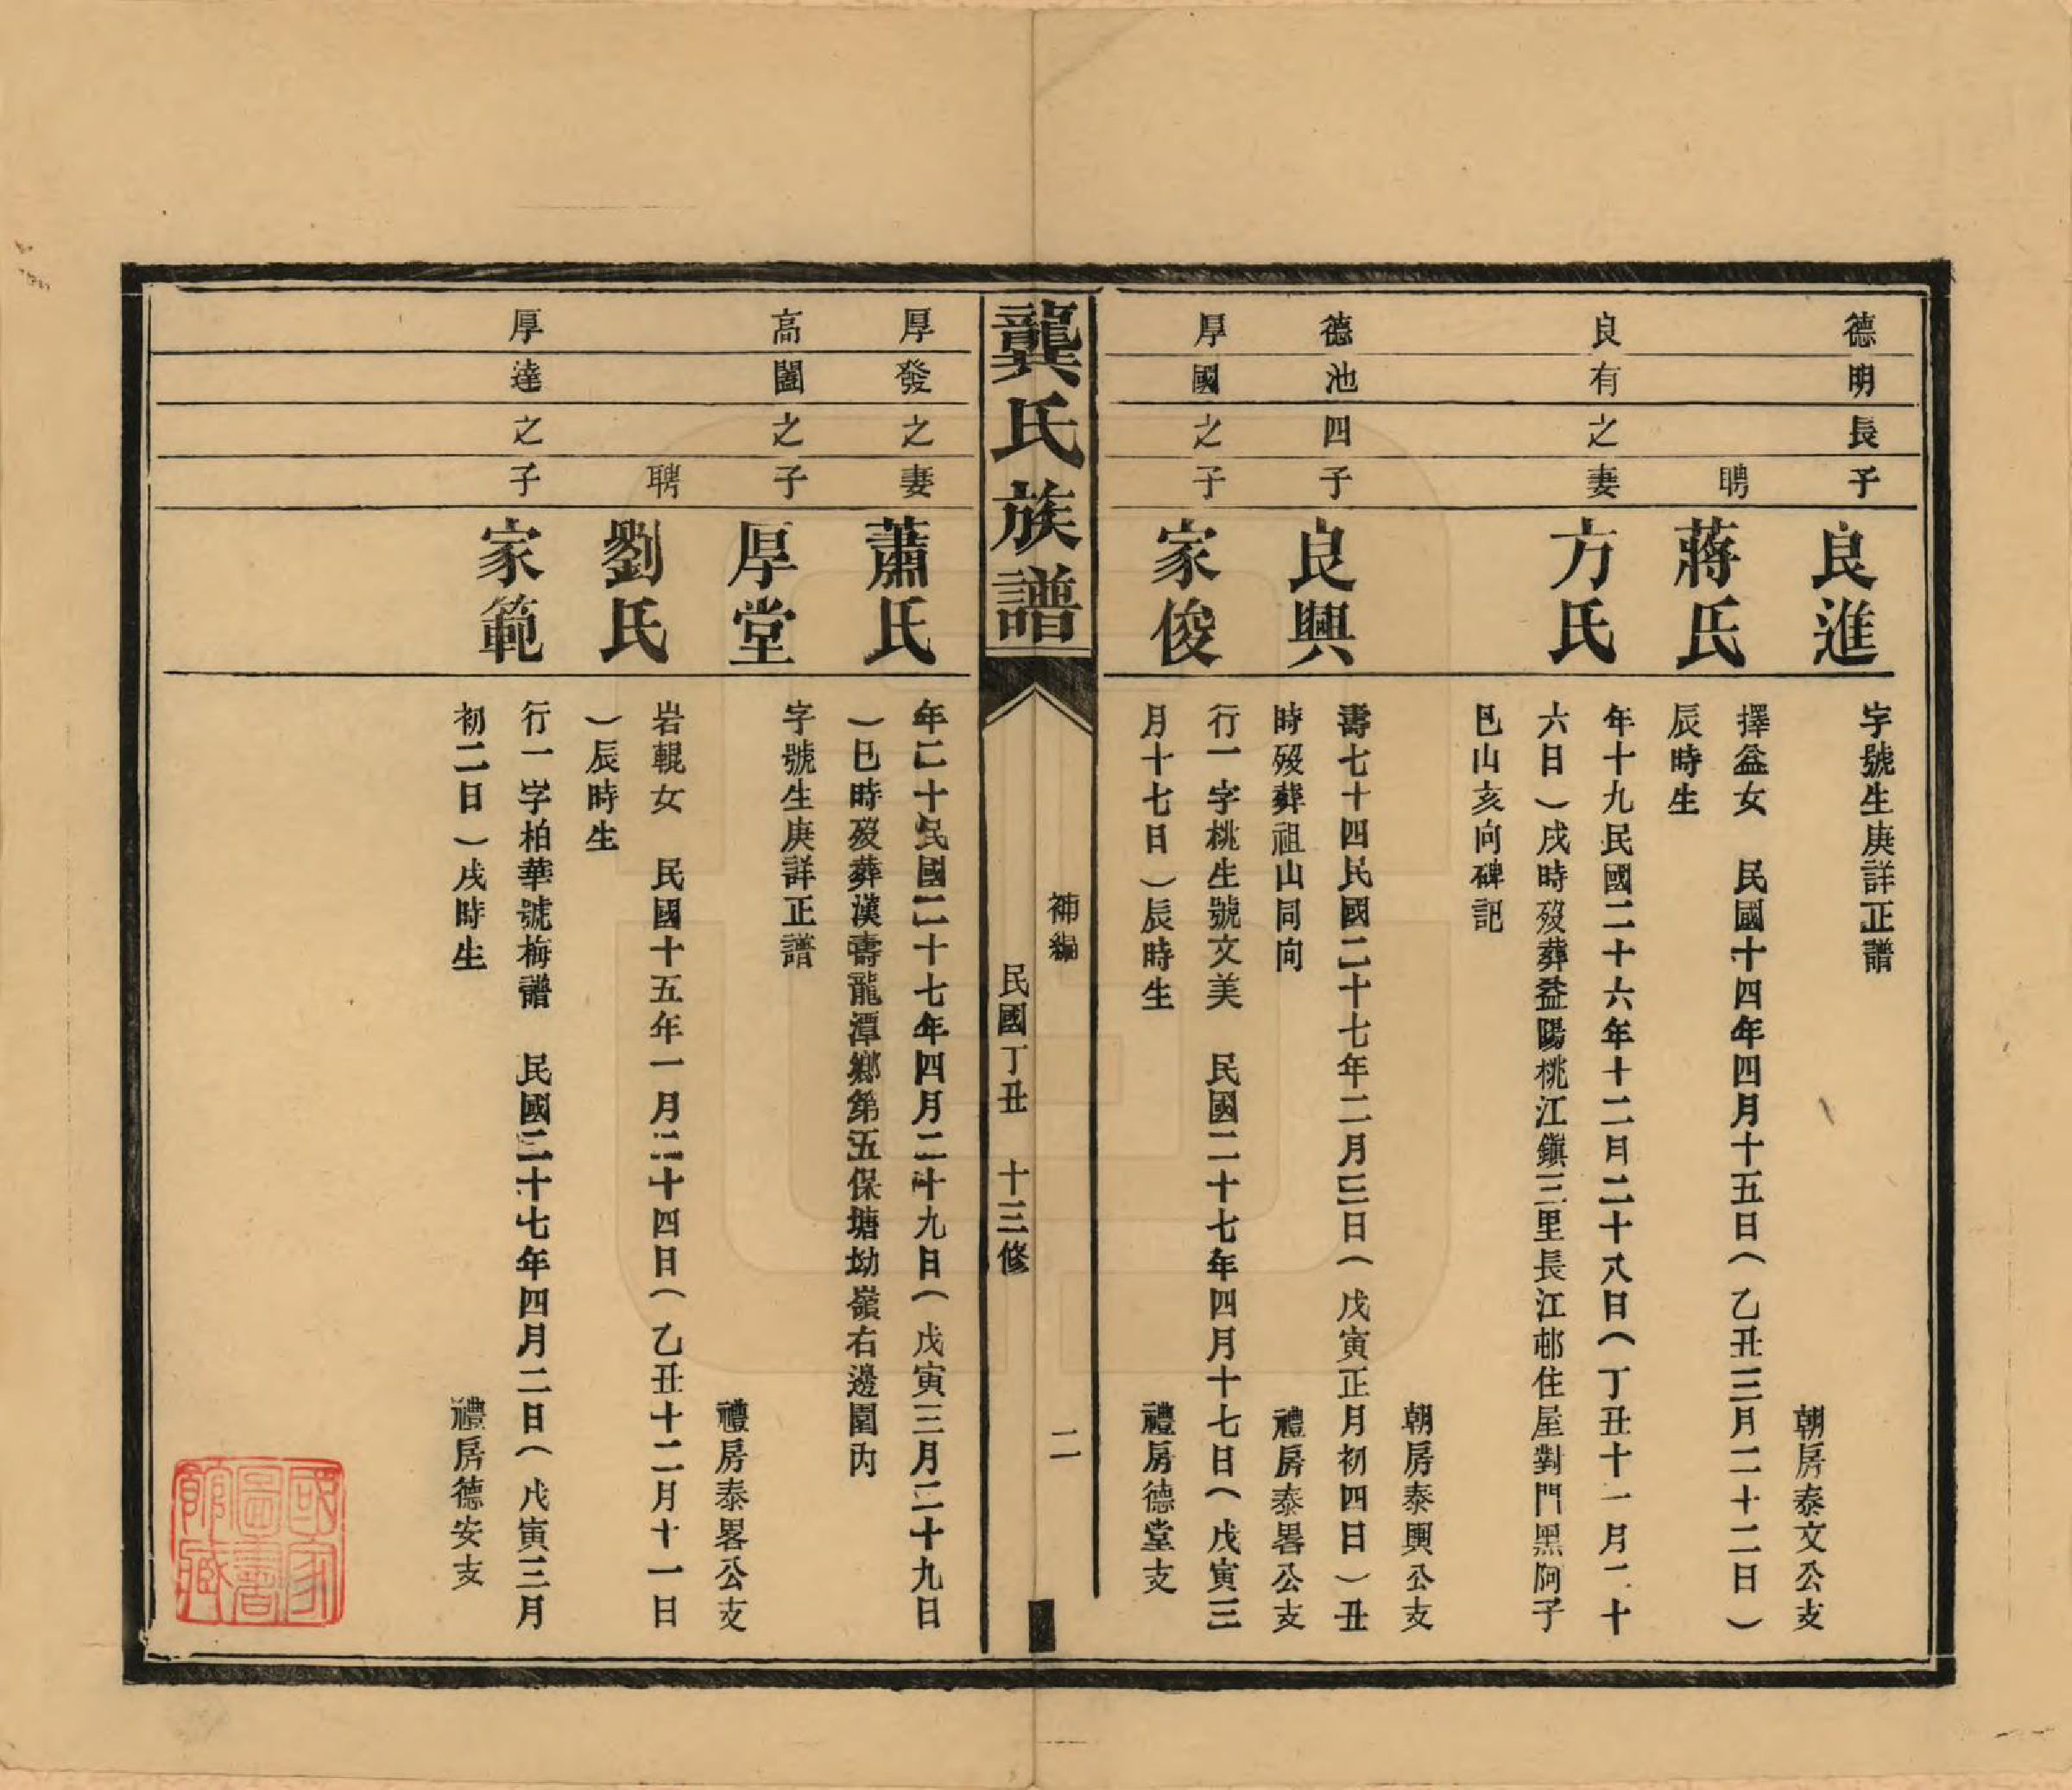 德明長子
良進
字號生庚詳正譜
朝房泰文公支
聘
蔣氏
擇益女　民國十四年四月十五日（乙丑三月二十二日）
辰時生
良有之妻
方氏
年十九民國二十六年十二月二十八日（丁丑十一月二十
六日）戌時歿葬益陽桃江鎭三里長江邨住屋對門黑阿子
巳山亥向碑記
朝房泰興公支
德池四子
良興
壽七十四民國二十七年二月三日（戊寅正月初四日）丑
時歿葬祖山同向
禮房泰畧公支
厚國之子
家俊
行一字桃生號文美　民國二十七年四月十七日（戊寅三
月十七日）辰時生
禮房德堂支
龔氏族譜
補編
二
民國丁丑　十三修
厚發之妻
蕭氏
年二十民國二十七年四月二十九日（戊寅三月二十九日
）巳時歿葬漢壽龍潭鄉第五保塘坳嶺右邊園內
高闓之子
厚堂
字號生庚詳正譜
禮房泰畧公支
聘
劉氏
岩輥女　民國十五年一月二十四日（乙丑十二月十一日
）辰時生
厚達之子
家範
行一字柏華號梅譜　民國二十七年四月二日（戊寅三月
初二日）戌時生
禮房德安支
國家圖書館藏